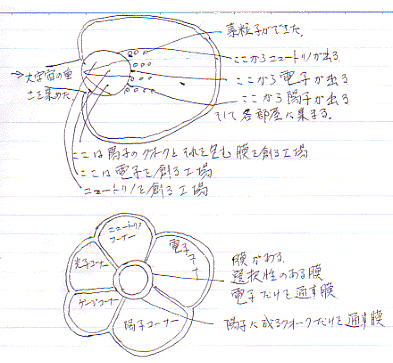 素粒子ができた。
ここからニュートリノが出る
ここから電子が出る
ここから陽子が出る
そして各部屋に集まる。
大宇宙の重
さを集めた。
ここは陽子のクオークとそれを包む膜を創る工場
ここは電子を創る工場
ニュートリノを創る工場
ニュートリノ
コーナー
電子
コーナー
光子コーナー
ゲージコーナー
陽子コーナー
膜がある。
選択性のある膜
電子だけを通す膜
陽子に成るクオークだけを通す膜